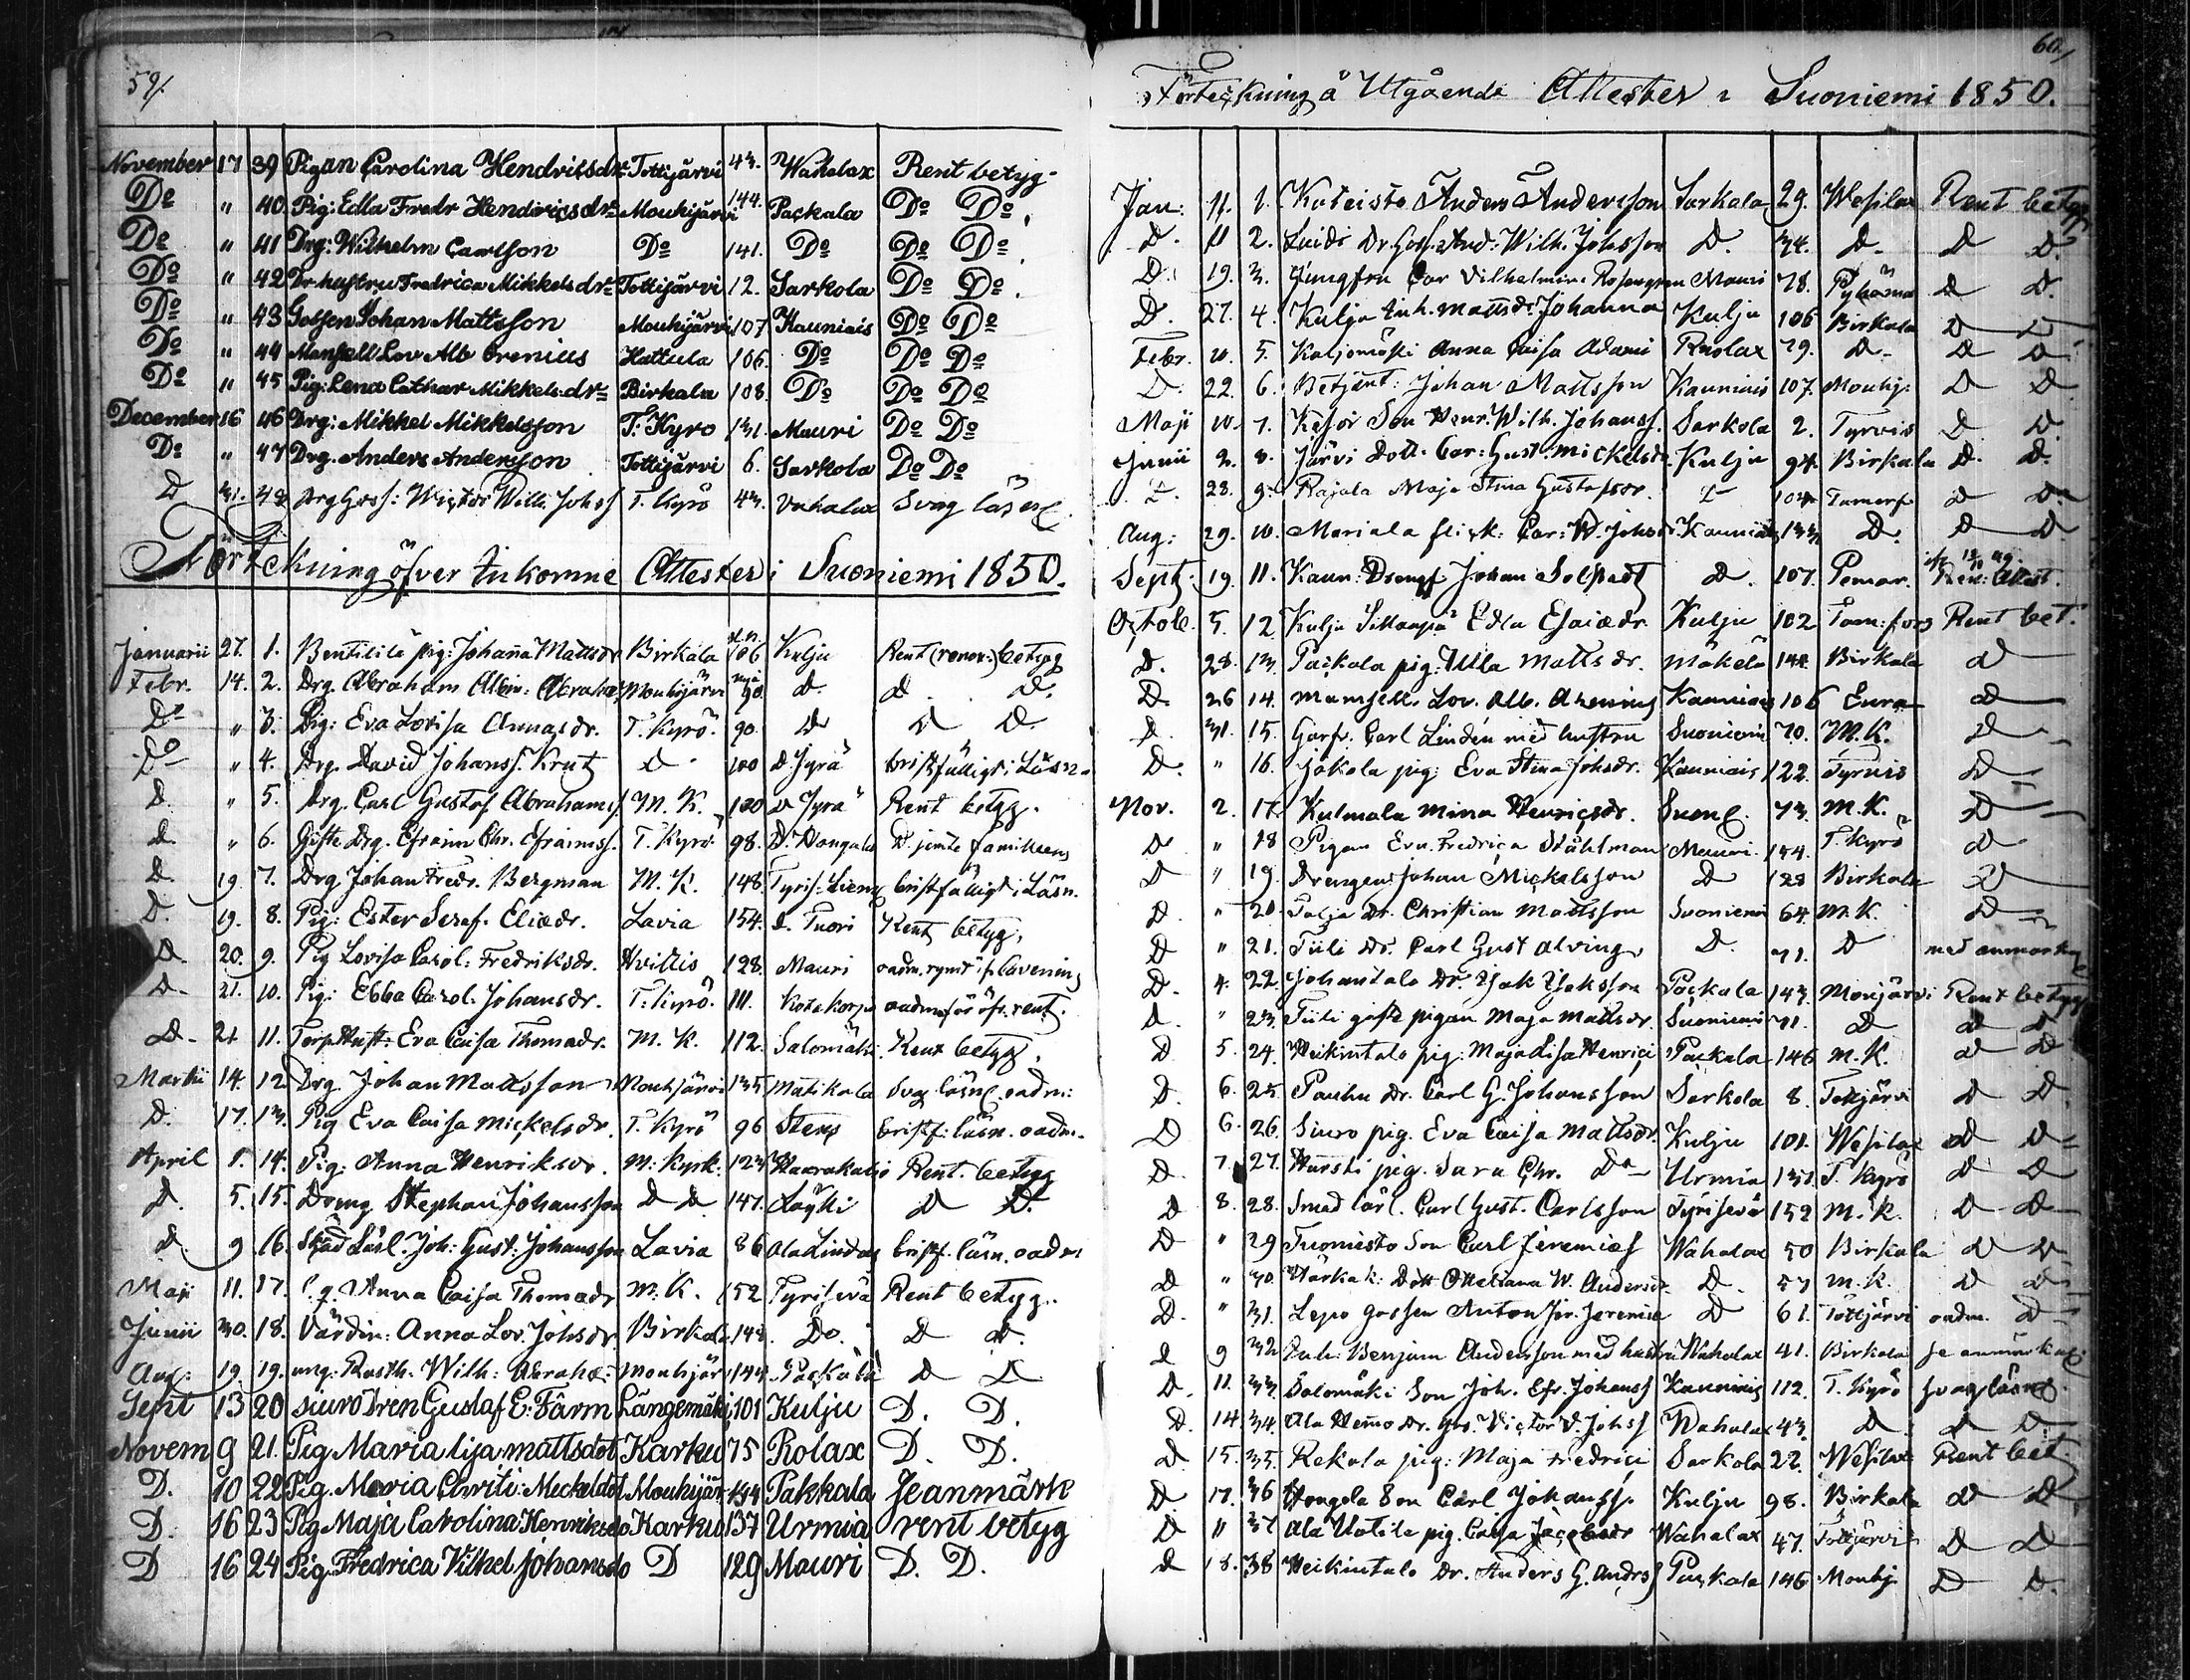 59.
November 17 39 Pigan Carolina Hendricsdr Tottijärvi 43. Wahalax Rent betyg
Do " 40 Pig: Edla Fredr Hendricsdr Mouhijärvi 144. Packala Do Do
Do " 41 Drg: Wilhelm Carlsson Do 141. Do Do Do
Do " 42 Dr hustru Fredrica Mikkelsdr Tottijärvi 12. Sarkola Do Do
Do " 43 Gossen Johan Mattsson Mouhijärvi 107 Kauniais Do Do
Do " 44 Mamsell Lov Alb Orenius Hattula 106. Do Do Do
Do " 45 Pig: Lena Cathar Mikkelsdr Birkala 108. Do Do Do
December 16 46 Drg: Mikkel Mikkelsson T. Kyro 131. Mauri Do Do
Do " 47 Drg. Anders Andersson Tottijärvi 6. Sarkola Do Do
D 31. 48 Drg Goss: Wictor Wilh. Johss T. Kyrö 43. Vahalax Svag läsn
Förteckning öfver Inkomne Attester i Suoniemi 1850.
Januarii 27. 1. pig: Johaña Mattsdr Birkala 106 Kulju Rent (renov:) betyg
Febr. 14. 2. Drg. Abraham Albin: Abrah: Mouhijärvi 90. d. d. D.
Do " 3. Pig: Eva Lovisa Annasdr. T. Kyrö. 90. D D D
Do " 4. Drg. David Johanss. Krutz d 100 D Jyrä bristfälligt i Läsn.
D. " 5. Drg. Carl Gustaf Abrahamss. M. K. 100 D Jyrä Rent betyg.
d. " 6. Gifte Drg. Efraim Chr. Efraimss. T. Kyrö. 98. D. Hongola D. jemte familien
D. 19 7. Drg Johan Fredr. Bergman M. K. 148. Tyris: Liem bristfälligt i Läsn.
D. 19. 8. Pig: Ester Seraf. Eliædr. Lavia 154. d. Tuori Rent betyg.
D. 20. 9. Pig Lovisa Carol. Fredriksdr. Hvittis 128. Mauri oadm.
D. 21. 10. Pig: Ebba Carol. Johansdr. T. Kyrö. 111. Kotakorpi oadm. för öfr. rent.
D. 21 11. Torp Hust: Eva Caisa Thomædr. M. K. 112. Salomäki Rent betyg.
Martii 14. 12 Drg. Johan Mattsson Mouhijärvi 135 Matikala Svag läsn. oadm:
D. 17. 13. Pig Eva Caisa Mickelsdr. T. Kyrö 96 Stens bristf: läsn. oadm.
April 1. 14. Pig: Anna Henriksdr. M: Kyrk. 123 Rent. betyg
D. 5. 15. Dreng Stephan Johansson D D 147. Löyki D D.
d 9 16. Skräd Lärl. Joh: Gust: Johansson Lavia 86 Ala Lindas bristf. läsn. oadm
Maji 11. 17. Anna Caisa Thomædr M. K. 152 Tyrisevä Rent betyg.
Junii 30. 18. Värdin: Anna Lov. Johsdr. Birkala 148. Do. D D.
Aug: 19 19. ung: Rusth. Wilh: Abrah: Mouhijär 144. Packala D D
Sept 13 20 Siuro Dren Gustaf E: Färm Längemäki 101 Kulju D. D.
Novem 9 21. Pig Maria Lisa mattsdot Karku 75 Rolax D. D.
D. 10 22 Pig. Maria Christi: Meckeldot Mouhijär 144 Pakkala Je anmärk
D. 16 23 Pig Maja Carolina Henriksdo Karku 137 Urmia rent betyg
D 16 24 Pig. Fredrica Vilhel Johansdo D 129 Mauri D. D.
60.
Förteckning å Utgående Attester i Suoniemi 1850.
Jan: 11. 1. Koteisto Anders Andersson Sarkola 29. Wesilax Rent betyg
D. 11 2. Luidi Dr. Goss. And: Wilh. Johsson D. 34. D. D D.
D. 19. 3. Jungfru Car Vilhelmin: Rosengren Mauri 28. Pyhäma D D.
D. 27. 4. Kulju Inh. mattsdr Johanna Kulju 106 Birkala D D
Febr. 10. 5. Kaljomäki Anna Caisa Adami Roolax 79. D. D D
D. 22. 6. Betjent: Johan Mattsson Kauniais 107. Mouhj. D D
Maji 10. 7. Son Henr. Wilh. Johanss. Sarkola 2. Tyrvis D. D.
Junii 2. 8. Järvi Dott. Car: Gust: Mickelsdr Kulju 94. Birkala D. D.
D. 28. 9. Rajala Maja Stina Gustafsdr. D 104 Tamerf D D
Aug: 29. 10. Mariala flick: Car: W. Johsdr Kauniais 133. D. D D
Sept. 19. 11. Kaun: Drengs Johan Solstedt D. 107. Pemar. Ren: Attest.
Octob. 5. 12. Kulju Sillanpä Edla Esaiædr. Kulju 102 Tam:fors Rent bet.
D. 28. 13. Packala pig: Ulla Mattsdr. Mäkelä 144. Birkala D
D. 26 14. Mamsell. Lov. Alb. Arenius Kauniais 106 Eura D
D. 31. 15. Garfv. Carl Lindén med hustru Suoniemi 70. M.K. D
D. " 16. Jokola pig: Eva Stina Johsdr. Kauniais 122. Tyrvis D
Nov. 2. 17. Kulmala Mina Henricsdr. Suon. 73. M.K. D
D. " 18 Pigan Eva Fredrica Ståhlman Mauri. 154. T. Kyrö D
D " 19 Drengen Johan Mickelsson D 128 Birkala D
D. " 20 Talja Dr. Christian Mattsson Suoniemi 64. M.K. D
D " 21. Tiili Dr. Carl Gust Alving D. 71. D med anmärkn
D. 4. 22. Johantalo Dr. Isak Isaksson Packala 143. Mouijärvi Rent betyg
D. " 23. Tiili gifte pigan Maja Mattsdr. Suoniemi 71. D D D
D 5. 24. Heikintalo pig: Maja Lisa Henrici Packala 146 M.K. D D
D. 6. 25. Pauhu Dr. Carl G. Johansson Sarkola 8. Totijärvi D D.
D 6. 26. Siuro pig. Eva Caisa Mattsdr. Kulju 101. Wesilax D D
D. 7. 27. Hursti pig. Sara Chr. Do Urmia 137. T. Kyrö D D
D 8. 28. Smed lärl. Carl Gust. Carlsson Tyrisevä 152 M. K. D D
D " 29 Tuomisto Son Carl Jeremias Wahalax 50 Birkala D D
D " 30. Dott Ottiliana W. Andersdr D. 57 M.K. D D
D. " 31. Lepo gossen Anton Jer. Jeremiæ D 61. Tottijärvi oadm. D
D 9 32 Inh: Benjam Andersson med hustru Wahalax 41. Birkala se anmärkn
D. 11. 33. Salomäki Son Joh. Efr. Johanss Kauniais 112. T. Kyrö svag läsn.
D. 14. 34. Ala Heimo Dr. Gos. Victor V. Johss Wahalax 43. D D D
D 15. 35. Rekola pig: Maja Fredrici Sarkola 22. Wesilax Rent bet.
D 17. 36 Hongola Son Carl Johanss. Kulju 98. Birkala D D
D " 37 Ala Uotila pig. Caisa Jacobsdr Wahalax 47. Tottjärvi D D
D 18. 38 Heikintalo Dr. Anders G. Andrs Packala 146 Mouhj D D.